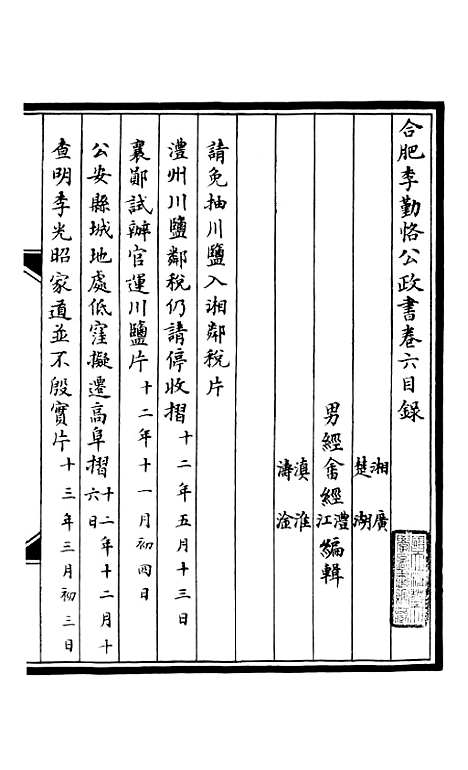 合肥李勤恪公政書卷六目錄
湘 廣
楚 湖
男經畬經 澧 江 編輯
滇 淮
濤 淦
請免抽川鹽入湘鄰稅片
澧州川鹽鄰稅仍請停收摺 十二年五月十三日
襄鄖試辦官運川鹽片 十二年十一月初四日
公安縣城地處低窪擬遷高阜摺 十二年十二月十六日
查明李光昭家道並不殷實片 十三年三月初三日